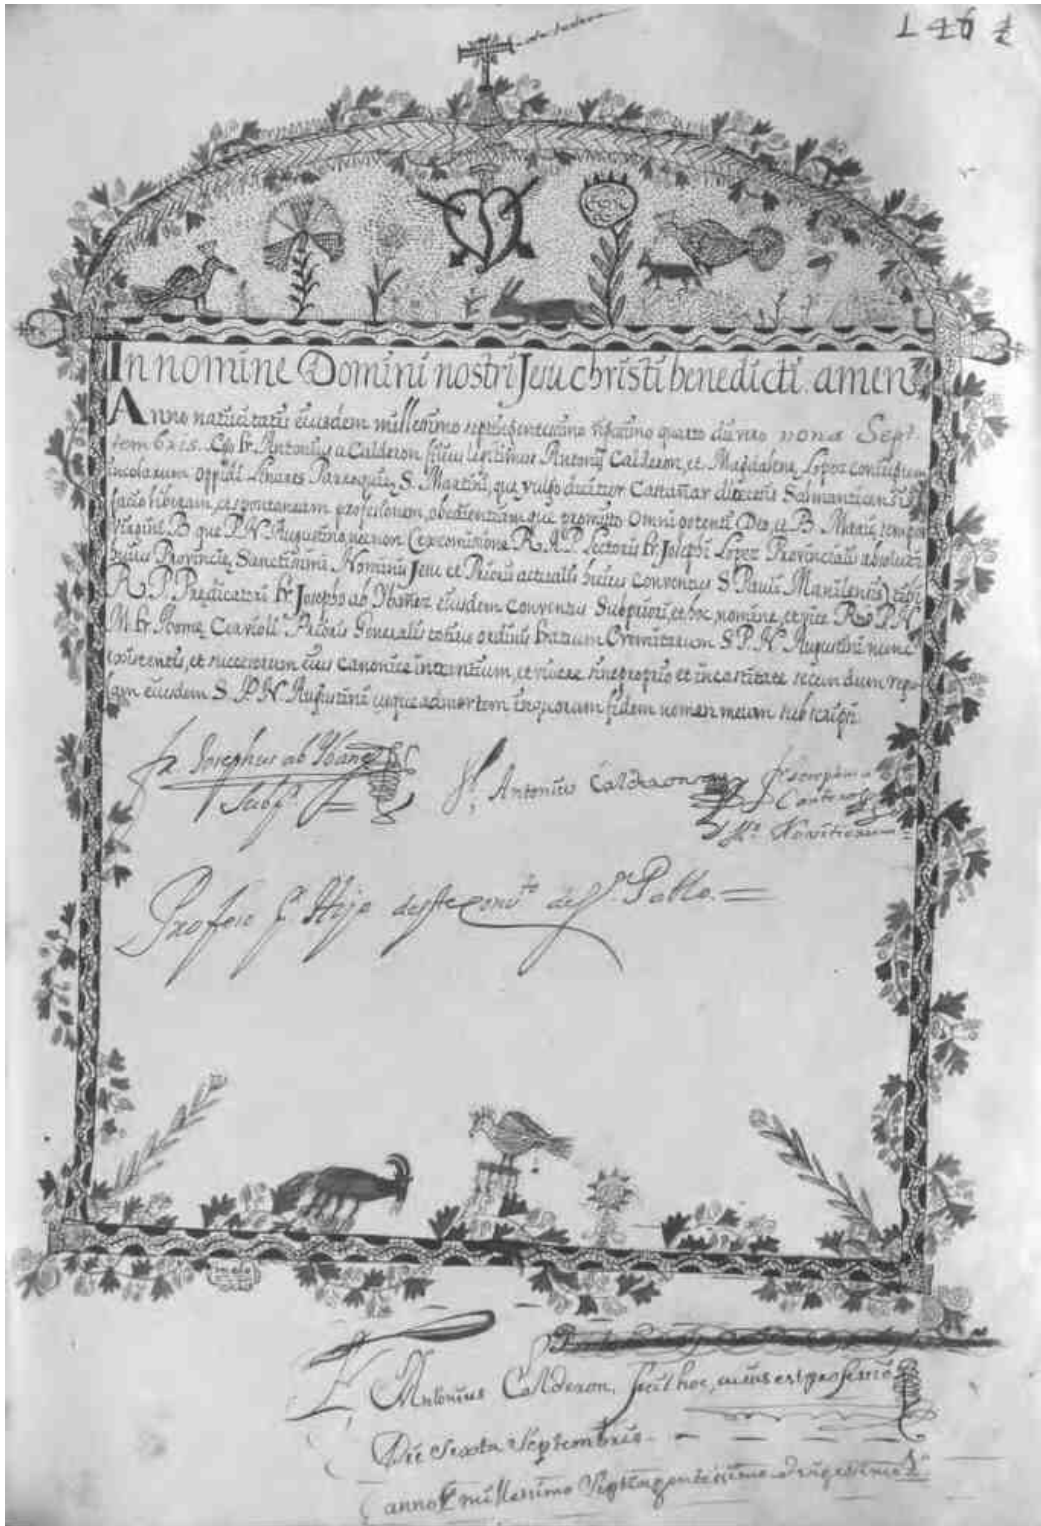 146
In nomine Domini nostri Jesu christi benedicti. amen
Anno natiuitatis eiusdem millesimo septingentesimo quarto die nono Sept.
tembris. Ego fr. Antonius a Calderon filius legitimus Antonij Calderon, et Magdalene Lopez coniugum
incolarum oppidi Linares Parroquie S. Martini, que vulgo dicitur Castañar diocesis Salmanticensis
facio liberam, et spontaneam profesionem, obedientiamque promitto Omnipotenti Deo, et B. Marie semper
virgini, B que P. N. Augustino, necnon Ex comisione R. A. P. Lectoris fr. Josephi Lopez Provincialis absoluti
huius Provincie Sanctissimi Nominis Jesu et Prioris actualis huius conventus S. Pauli Manilensis) tibi
R. P. Predicatori fr. Josepho ab Ybañez eiusdem conventus Subpriori, et hoc nomine, et vice R. P. N.
M. fr. Prioris Generalis totius ordinis fratrum Eremitarum S. P. N. Augustini nunc
existentis, et succesorum eius canonice intrantium, et vivere sine proprio et in castitate secundum regu-
lam eiusdem S. P. N. Augustini usque ad mortem in quorum fidem nomen meum subscripsi.
fr. Josephus ab Ybañez
Subpr.
fr. Antonius Calderon
Mr. Novitiorum
Profeso Hijo deste convto de S. Pablo.
Antonius Calderon, fecit hoc, cuius est profesio
Die Sexta Septembris
anno millesimo Septuagentesimo